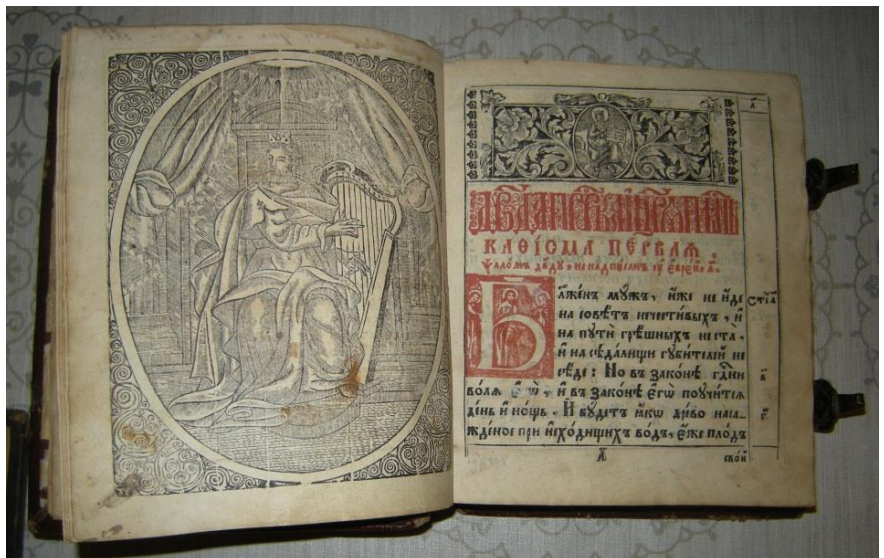 а҃
КАѲІСМА ПЕ́РВАѦ
Ѱало́мъ дв҃ду, не надпи́санъ ѹ҆ є҆вре́й, а҃.
Бл҃же́нъ мꙋ́жъ, и҆́же не и҆́де
Стїⷯ а҃
на совѣ́тъ нечести́выхъ, и҆
на пꙋтѝ грѣ́шныхъ не ста̀.
и҆ на сѣда́лищи гꙋби́телей не
сѣ́де: Но въ зако́нѣ гдⷭ҇ни
в҃
во́лѧ є҆гѡ̀, и҆ въ зако́нѣ є҆гѡ̀ поꙋчи́тсѧ
де́нь и҆ но́щь. И҆ бꙋ́детъ ꙗ҆́кѡ дре́во наса-
г҃
жде́ное при и҆схо́дищихъ во́дъ, є҆́же пло́дъ
а҃
сво́й